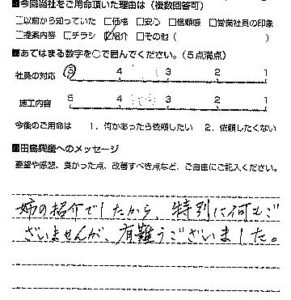 ■今回当社をご用命頂いた理由は（複数回答可）
□以前から知っていた □価格 □安心 □信頼感 □営業社員の印象
□提案内容 □チラシ □紹介 □その他（　　　）
■あてはまる数字を○で囲んでください。（５点満点）
社員の対応 5 4 3 2 1
施工内容 5 4 3 2 1
今後のご用命は 1．何かあったら依頼したい 2．依頼したくない
■田島興産へのメッセージ
要望や感想、良かった点、改善すべき点など、ご自由にご記入ください。
姉の紹介でしたから、特別に何もご
ざいませんが、有難うございました。